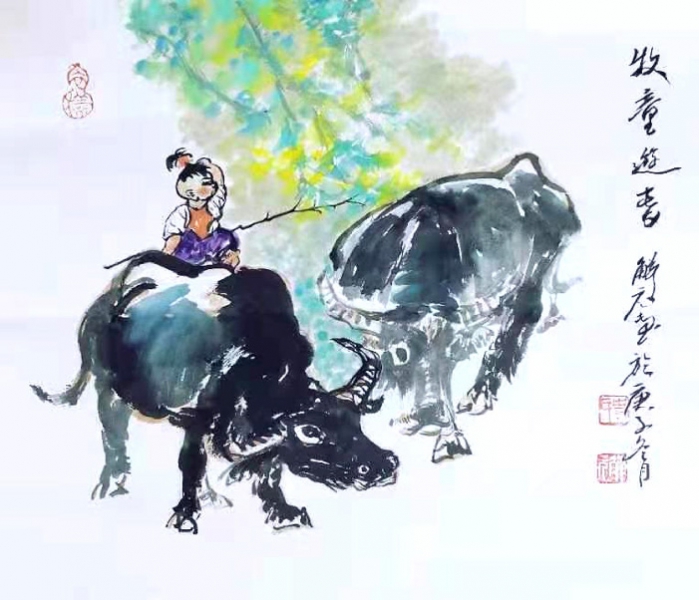 牧童遊春 解石画於庚子冬月